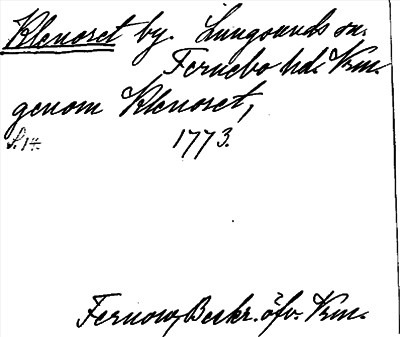 Klenoret by. Lungsunds sn.
Fernebo hd. Vrm.
genom Klenoret,
S. 14. 1773.
Fernow, Beskr. öfv. Vrm.